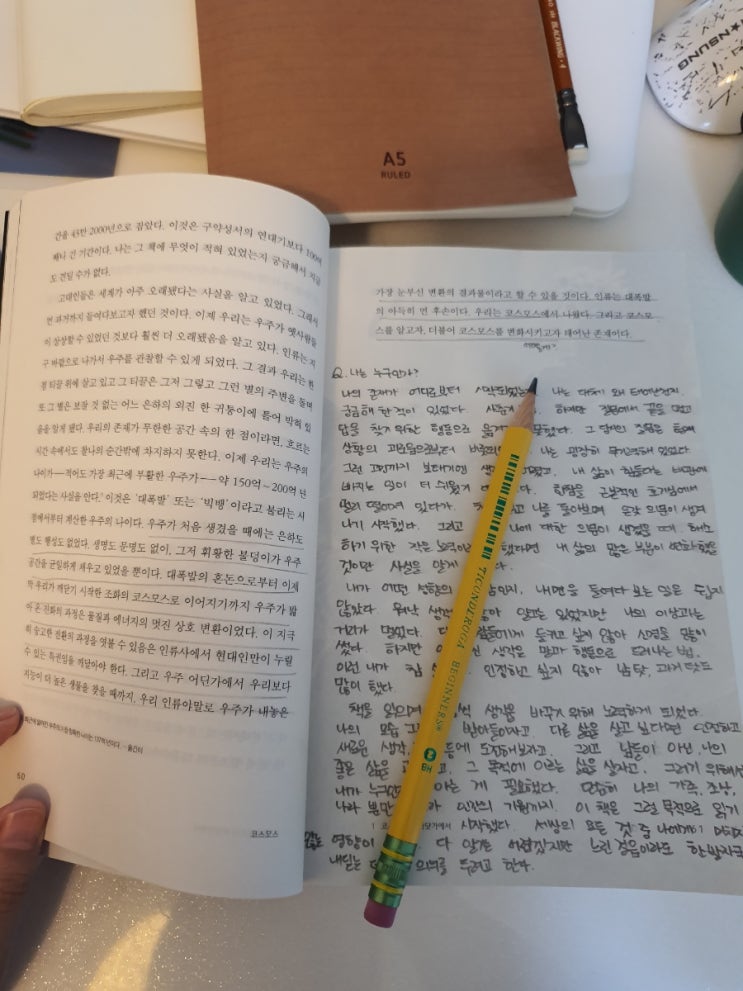 A5
RULED
BLACKWING
간을 43만 2000년으로 잡았다. 이것은 구약성서의 연대기보다 100배
해나 긴 기간이다. 나는 그 책에 무엇이 적혀 있었는지 궁금해서 지금
도 견딜 수가 없다.
고대인들은 세계가 아주 오래됐다는 사실을 알고 있었다. 그래서
먼 과거까지 들여다보고자 했던 것이다. 이제 우리는 우주가 옛사람들
이 상상할 수 있었던 것보다 훨씬 더 오래됐음을 알고 있다. 인류는 지
구 바깥으로 나가서 우주를 관찰할 수 있게 되었다. 그 결과 우리는 한
점 티끌 위에 살고 있고 그 티끌은 그저 그렇고 그런 별의 주변을 돌며
또 그 별은 보잘 것 없는 어느 은하의 외진 한 귀퉁이에 틀어 박혀 있
음을 알게 됐다. 우리의 존재가 무한한 공간 속의 한 점이라면, 흐르는
시간 속에서도 찰나의 순간밖에 차지하지 못한다. 이제 우리는 우주의
나이가──적어도 가장 최근에 부활한 우주가──약 150억~200억 년
되었다는 사실을 안다.* 이것은 '대폭발' 또는 '빅뱅'이라고 불리는 시
점에서부터 계산한 우주의 나이다. 우주가 처음 생겼을 때에는 은하도
별도 행성도 없었다. 생명도 문명도 없이, 그저 휘황한 불덩이가 우주
공간을 균일하게 채우고 있었을 뿐이다. 대폭발의 혼돈으로부터 이제
막 우리가 깨닫기 시작한 조화의 코스모스로 이어지기까지 우주가 밟
아 온 진화의 과정은 물질과 에너지의 멋진 상호 변환이었다. 이 지극
히 숭고한 전환의 과정을 엿볼 수 있음은 인류사에서 현대인만이 누릴
수 있는 특권임을 깨달아야 한다. 그리고 우주 어딘가에서 우리보다
지능이 더 높은 생물을 찾을 때까지, 우리 인류야말로 우주가 내놓은
60
코스모스
가장 눈부신 변환의 결과물이라고 할 수 있을 것이다. 인류는 대폭발
의 아득히 먼 후손이다. 우리는 코스모스에서 나왔다. 그리고 코스모
스를 알고자, 더불어 코스모스를 변화시키고자 태어난 존재이다.
Q. 나는 누구인가?
나의 존재가 어디로부터 시작되었는 나는 대체 왜 태어난건지.
궁금해 한 적이 있었다. 하지만 질문에서 끝을 맺고
답을 찾기 위한 행동으로 못했다. 그 당시의 질문은
상황의 나는 굉장히 무기력해 있었다.
내 삶이 힘들다는
바지는 일이 더 쉬웠기
떨어 있다가. 나를 돌아보며 순간 의문이 생겨
나기 시작했다. 그리고 나에 대한 의문이 생겼을 때. 해소
하기 위한 작은 노력이라 했다면 내 삶의 많은 부분이
것이란 사실을 알게
내가 어떤 성향의 인지. 내면을 들여다 보는 일은 쉽지
않았다. 워낙 생 않아 있었지만 나의 이상과는
거리가 멀었다. 들에게 들키고 싶지 않아 신경을 많이
썼다. 하지만 생각은 말과 행동으로 드러나는 법.
이런 내가 인정하고 싶지 않아 남 탓, 과거 탓도
많이 했다.
책을 읽으며 생각을 바꾸기 위해 노력하게 되었다.
나의 모습 받아들이자고. 다른 삶을 살고 싶다면 인정하고
새로운 생각, 등에 도전해보자고. 그리고 남들이 아닌 나의
좋은 삶을 그 목적에 이르는 삶을 살자고. 그러기 위해서
내가 누구인 아는 게 필요했다. 나의 가족, 조상,
나라 뿐만 인간의 기원까지. 이 책은 그런 목적으로 읽기
시작했다. 세상의 모든 것 중 나에게
영향이 다 알기는 어렵겠지만 느린 걸음이라도
내딛는 의의를 두려고 한다.
TICONDEROGA BEGINNERS
HB
2